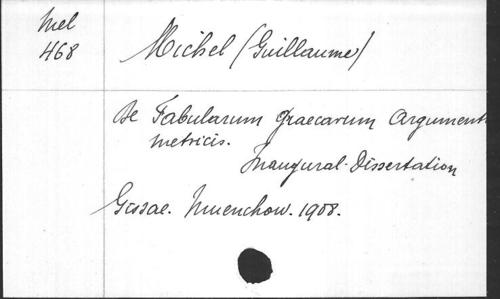 Mel
468
Michel (Guillaume)
De Fabularum graecarum argument
metricis.
Inaugural-Dissertation
Gissae. Muenchow. 1908.